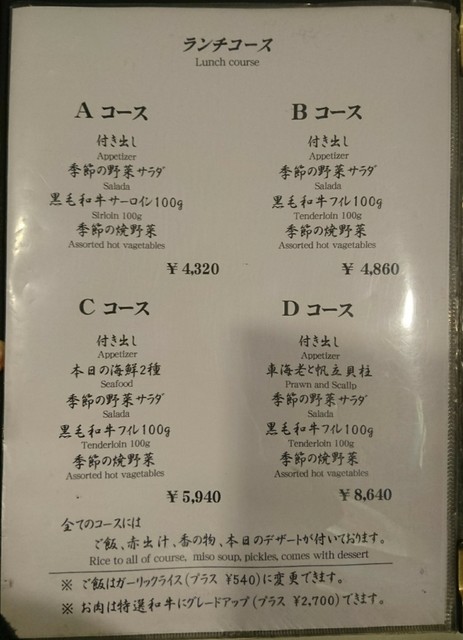 ランチコース
Lunch course
A コース
付き出し
Appetizer
季節の野菜サラダ
Salada
黒毛和牛サーロイン100g
Sirloin 100g
季節の焼野菜
Assorted hot vagetables
¥4,320
B コース
付き出し
Appetizer
季節の野菜サラダ
Salada
黒毛和牛フィレ100g
Tenderloin 100g
季節の焼野菜
Assorted hot vagetables
¥4,860
C コース
付き出し
Appetizer
本日の海鮮2種
Seafood
季節の野菜サラダ
Salada
黒毛和牛フィレ100g
Tenderloin 100g
季節の焼野菜
Assorted hot vagetables
¥5,940
D コース
付き出し
Appetizer
車海老と帆立貝柱
Prawn and Scallp
季節の野菜サラダ
Salada
黒毛和牛フィレ100g
Tenderloin 100g
季節の焼野菜
Assorted hot vagetables
¥8,640
全てのコースには
ご飯、赤出汁、香の物、本日のデザートが付いております。
Rice to all of course, miso soup, pickles, comes with dessert
※ ご飯はガーリックライス(プラス ¥540)に変更できます。
※ お肉は特選和牛にグレードアップ(プラス ¥2,700)できます。